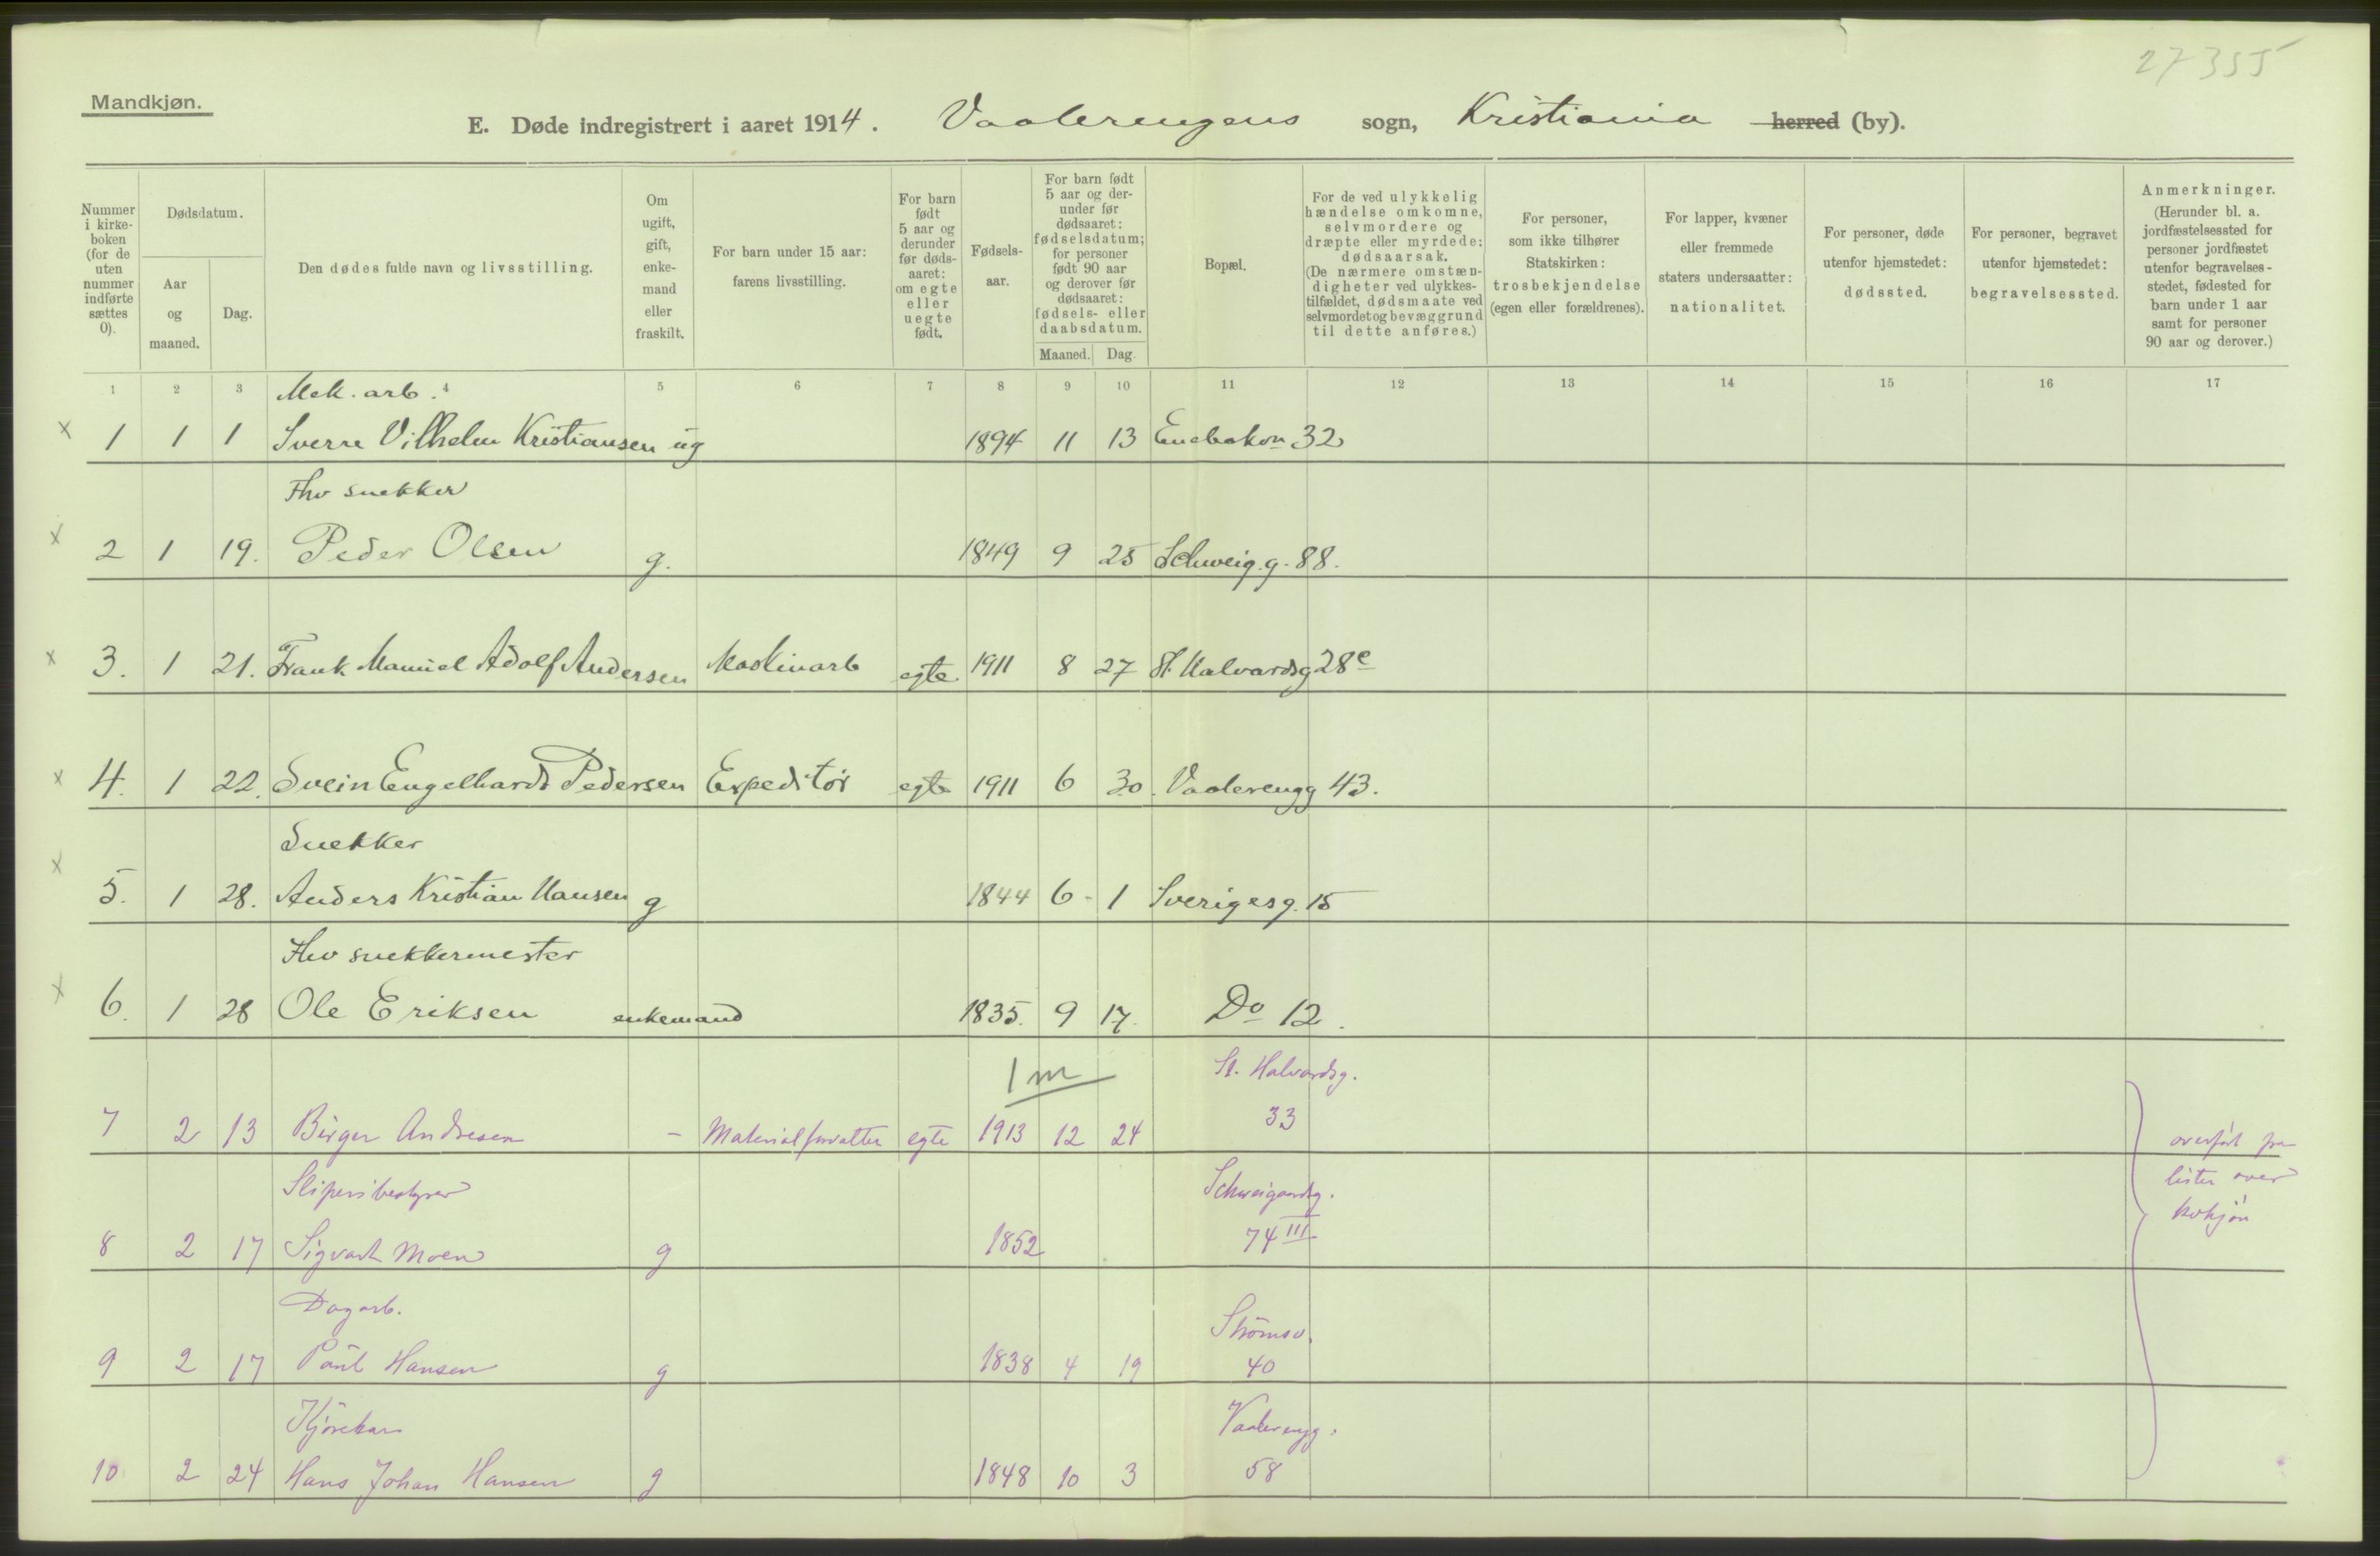 27355
Mandkjøn.
E. Døde indregistrert i aaret 1914. Vaalerengens sogn, Kristiania herred (by).
Nummer i kirke-boken (for de uten nummer indførte sættes 0).
Dødsdatum.
Aar og maaned.
Dag.
Den dødes fulde navn og livsstilling.
Om ugift, gift, enke-mand eller fraskilt.
For barn under 15 aar: farens livsstilling.
For barn født 5 aar og derunder før døds-aaret: om egte eller uegte født.
Fødsels-aar.
For barn født 5 aar og der-under før dødsaaret: fødselsdatum; for personer født 90 aar og derover før dødsaaret: fødsels- eller daabsdatum.
Maaned. Dag.
Bopæl.
For de ved ulykkelig hændelse omkomne, selvmordere og dræpte eller myrdede: dødsaarsak. (De nærmere omstæn-digheter ved ulykkes-tilfældet, dødsmaate ved selvmordet og bevæggrund til dette anføres.)
For personer, som ikke tilhører Statskirken: trosbekjendelse (egen eller forældrenes).
For lapper, kvæner eller fremmede staters undersaatter: nationalitet.
For personer, døde utenfor hjemstedet: dødssted.
For personer, begravet utenfor hjemstedet: begravelsessted.
Anmerkninger. (Herunder bl. a. jordfæstelsessted for personer jordfæstet utenfor begravelses-stedet, fødested for barn under 1 aar samt for personer 90 aar og derover.)
1 2 3 4 5 6 7 8 9 10 11 12 13 14 15 16 17
Mek. arb.
x 1 1 1 Sverre Vilhelm Kristiansen ug 1894 11 13 Enebakvn 32
Fhv snekker
x 2 1 19. Peder Olsen g. 1849 9 25 Schweig. g. 88.
x 3. 1 21. Frank Manuel Adolf Andersen Maskinarb egte 1911 8 27 St. Halvardsg 28e
x 4. 1 22. Svein Engelhardt Pedersen Expeditør egte 1911 6 30. Vaalerengg 43.
Snekker
x 5. 1 28. Anders Kristian Hansen g 1844 6 - 1 Sverigesg. 15
Fhv snekkermester
x 6. 1 28 Ole Eriksen enkemand 1835. 9 17. Do 12.
1 m St. Halvardsg.
7 2 13 Birger Andresen - Materialforvalter egte 1913 12 24 33
overført fra
Sliperibestyrer Schweigaardsg. lister over
8 2 17 Sigvart Moen g 1852 74 III kvkjøn
Dagarb. Strømsv.
9 2 17 Paul Hansen g 1838 4 19 40
Kjørekar Vaalerengg.
10 2 24 Hans Johan Hansen g 1848 10 3 58